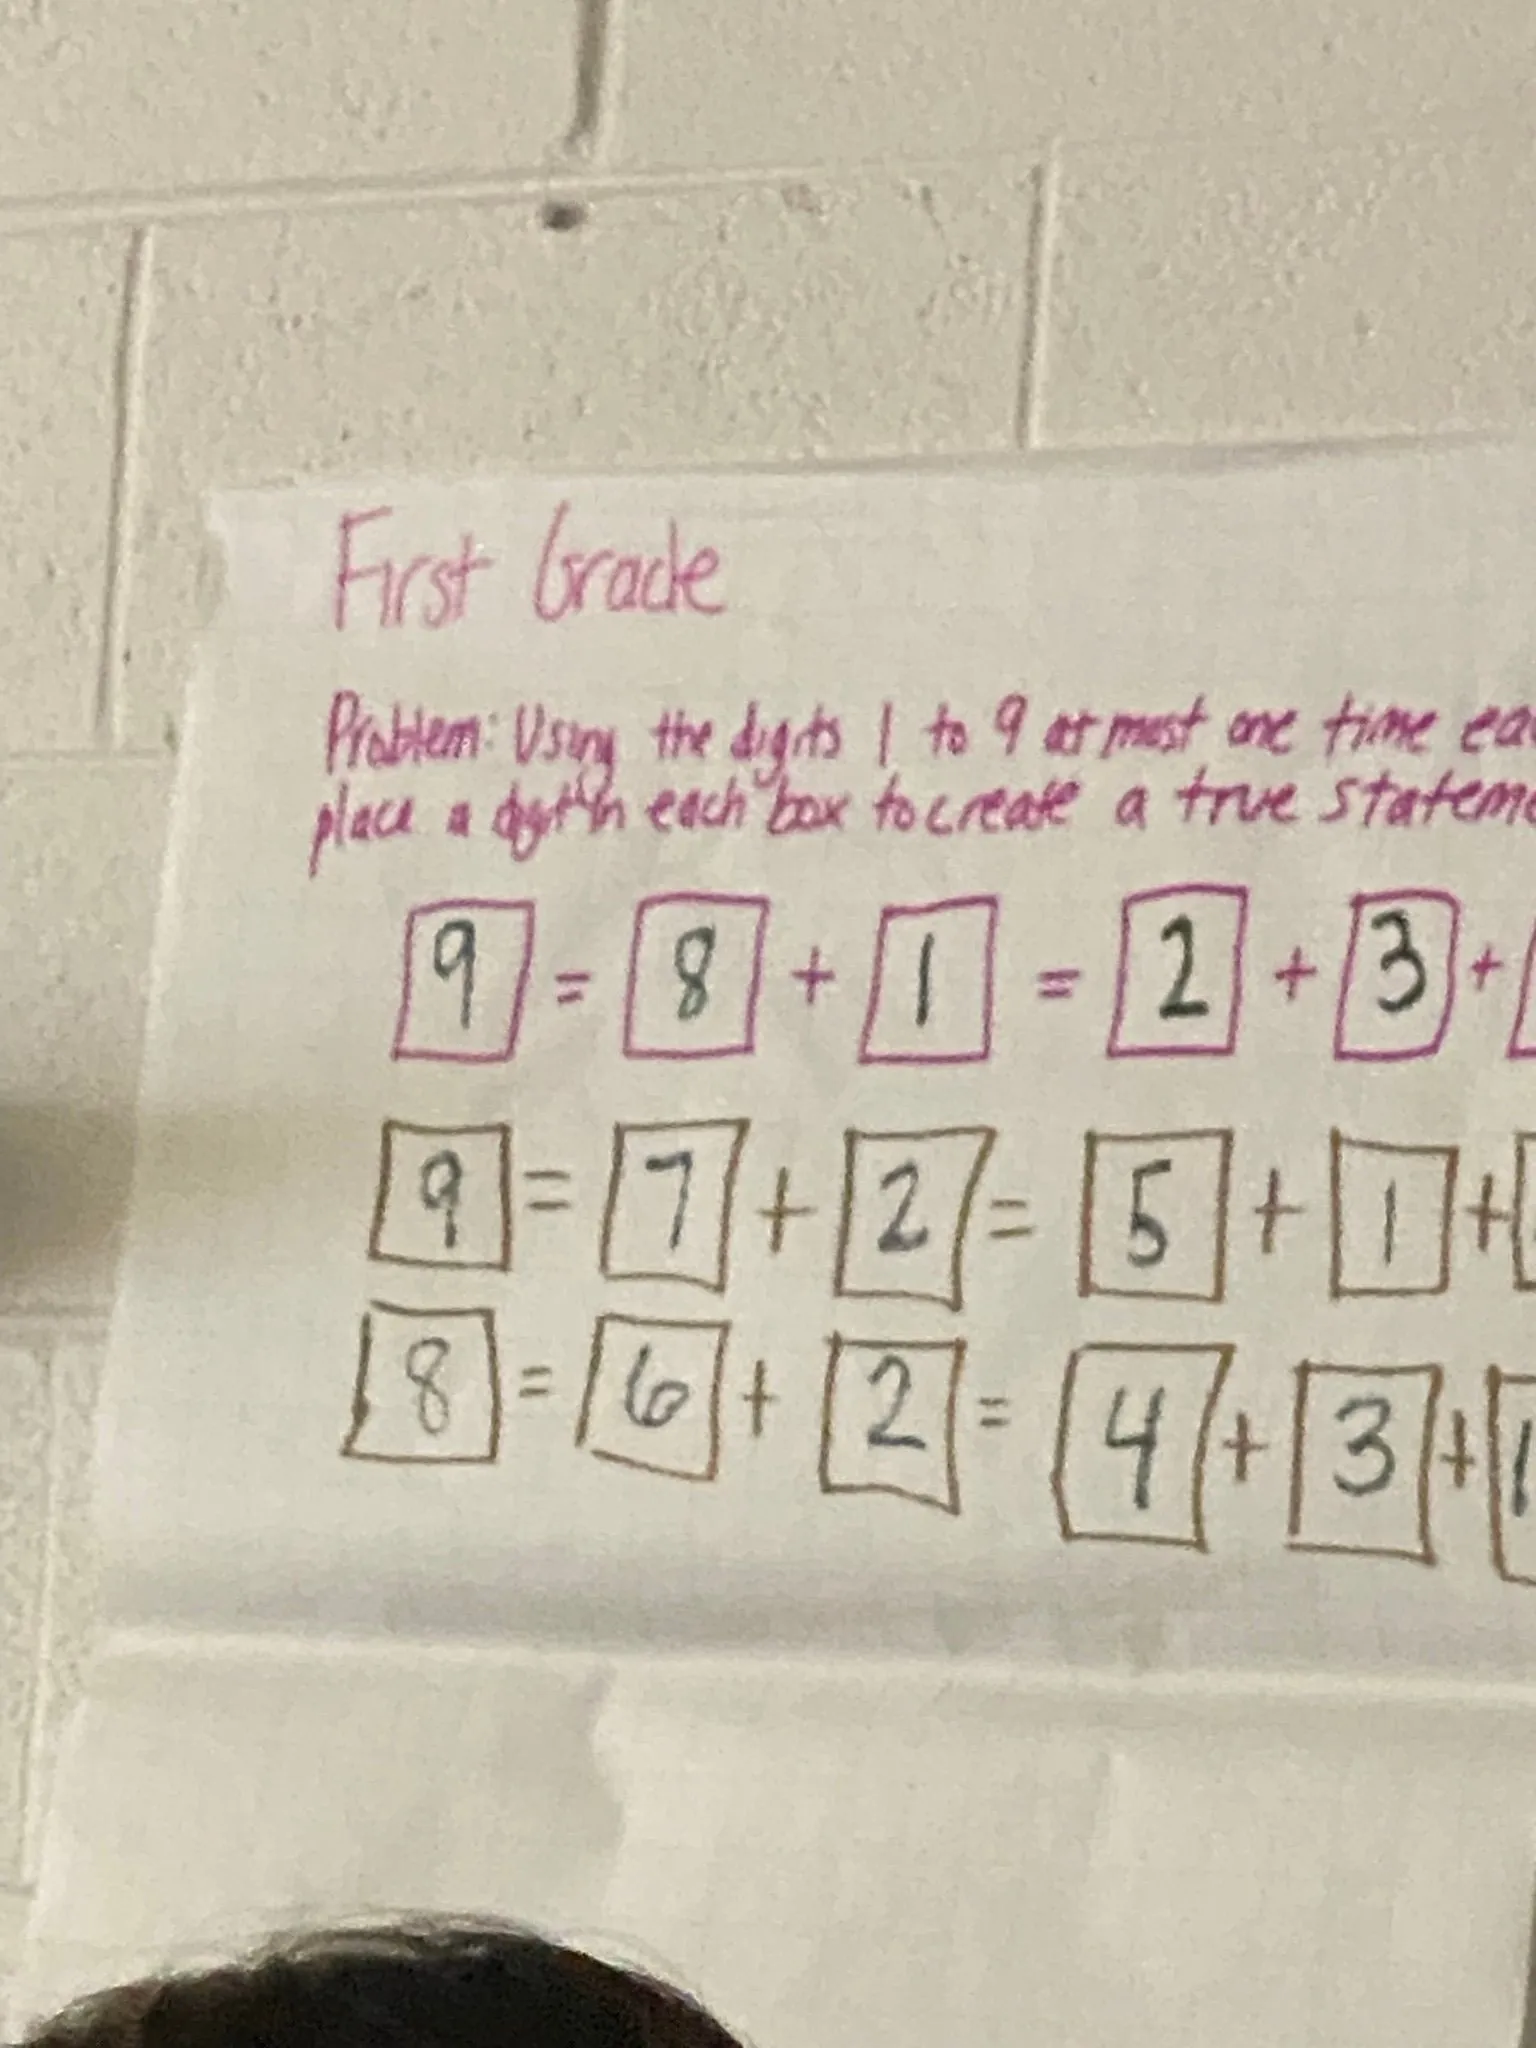 First Grade
Problem: Using the digits 1 to 9 at most one time eac
place a digit in each box to create a true stateme
9 = 8 + 1 = 2 + 3 +
9 = 7 + 2 = 5 + 1 +
8 = 6 + 2 = 4 + 3 + 1